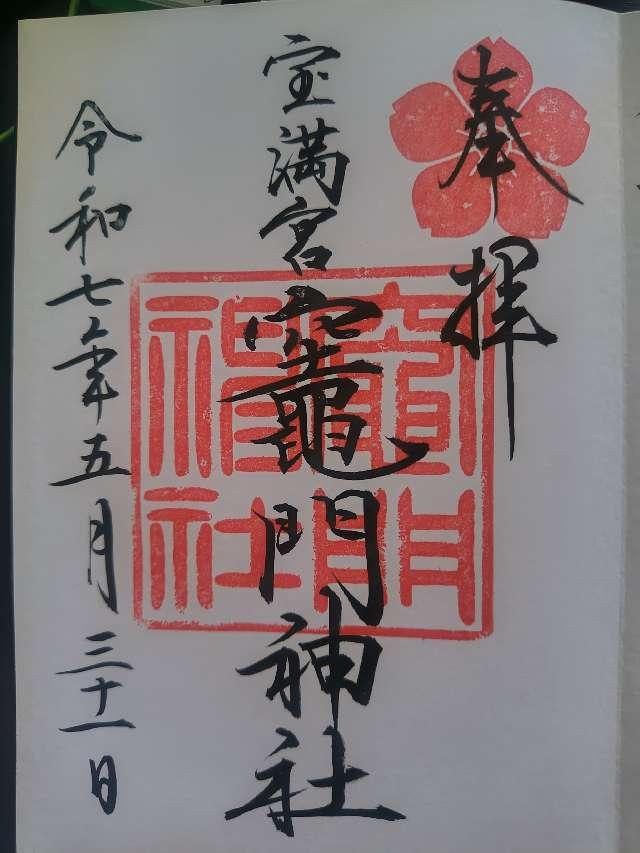 奉拝
宝満宮竈門神社
竈門神社
令和七年五月三十一日